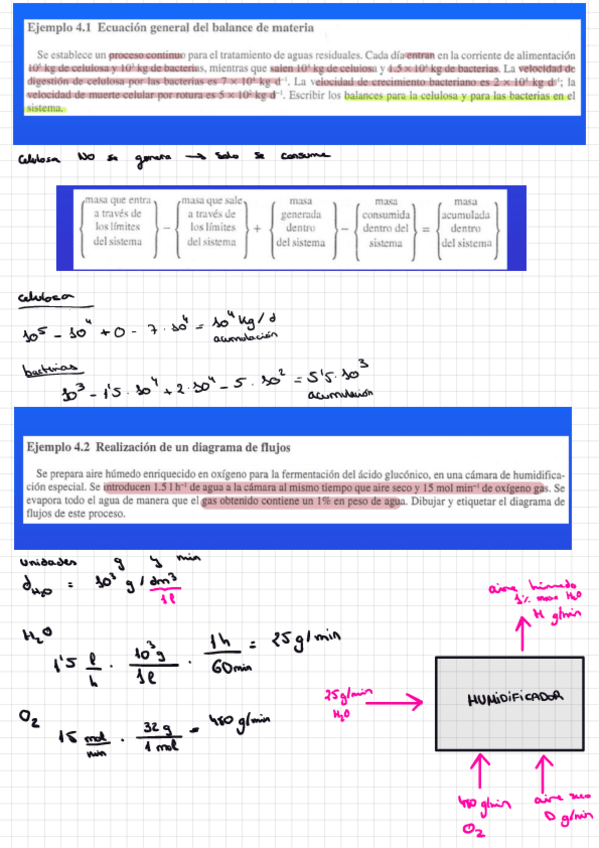 Ejemplo 4.1 Ecuación general del balance de materia
Se establece un proceso continuo para el tratamiento de aguas residuales. Cada día entran en la corriente de alimentación
10⁵ kg de celulosa y 10³ kg de bacterias, mientras que salen 10⁴ kg de celulosa y 1.5 × 10⁴ kg de bacterias. La velocidad de
digestión de celulosa por las bacterias es 7 × 10⁴ kg d⁻¹. La velocidad de crecimiento bacteriano es 2 × 10⁴ kg d⁻¹; la
velocidad de muerte celular por rotura es 5 × 10² kg d⁻¹. Escribir los balances para la celulosa y para las bacterias en el
sistema.
Celulosa NO se genera → solo se consume
{masa que entra a través de los límites del sistema} − {masa que sale a través de los límites del sistema} + {masa generada dentro del sistema} − {masa consumida dentro del sistema} = {masa acumulada dentro del sistema}
celulosa
10⁵ - 10⁴ + 0 - 7·10⁴ = 10⁴ kg/d
acumulación
bacterias
10³ - 1'5·10⁴ + 2·10⁴ - 5·10² = 5'5·10³
acumulación
Ejemplo 4.2 Realización de un diagrama de flujos
Se prepara aire húmedo enriquecido en oxígeno para la fermentación del ácido glucónico, en una cámara de humidifica-
ción especial. Se introducen 1.5 l h⁻¹ de agua a la cámara al mismo tiempo que aire seco y 15 mol min⁻¹ de oxígeno gas. Se
evapora todo el agua de manera que el gas obtenido contiene un 1% en peso de agua. Dibujar y etiquetar el diagrama de
flujos de este proceso.
unidades g y min
d H₂O = 10³ g/dm³
1l
H₂O
1'5 l/h · 10³g/1l · 1h/60min = 25 g/min
O₂
15 mol/min · 32g/1mol = 480 g/min
aire húmedo
1% masa H₂O
H g/min
25 g/min
H₂O
HUMIDIFICADOR
480 g/min
O₂
aire seco
D g/min